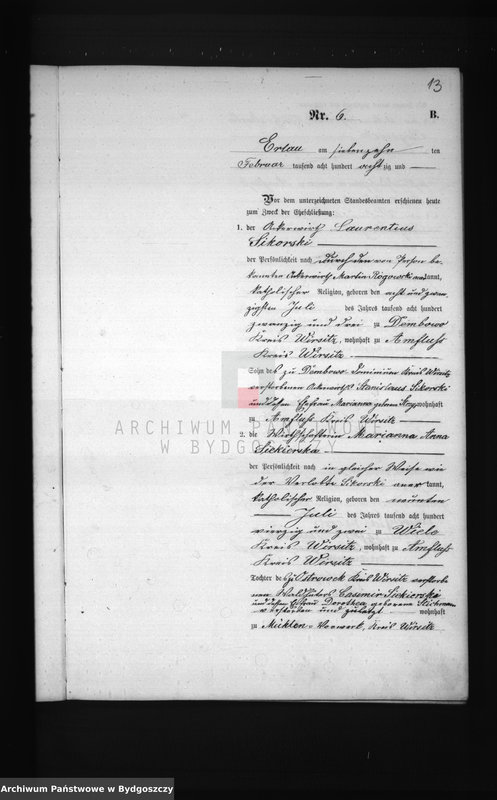 13
Nr. 6. B.
Erlau am siebenzehn ten
Februar tausend acht hundert achtzig und —
Vor dem unterzeichneten Standesbeamten erschienen heute
zum Zweck der Eheschließung:
1. der Ackerwirth Laurentius
Sikorski
der Persönlichkeit nach durch den von Person be-
kannten Ackerwirth Martin Rogowski anerkannt,
katholischer Religion, geboren den acht und zwan-
zigsten Juli des Jahres tausend acht hundert
zwanzig und drei zu Dembowo
Kreis Wirsitz, wohnhaft zu Amfluss
Kreis Wirsitz
Sohn des zu Dembowo Dominium Kreis Wirsitz
verstorbenen Ackerwirths Stanislaus Sikorski
und dessen Ehefrau Marianna geborene wohnhaft
zu Amfluss Kreis Wirsitz
ARCHIWUM PAŃSTWOWE
W BYDGOSZCZY
2. die Wirthschafterin Marianna Anna
Siekierska
der Persönlichkeit nach in gleicher Weise wie
der Verlobte Sikorski anerkannt,
katholischer Religion, geboren den neunten
Juli des Jahres tausend acht hundert
vierzig und zwei zu Wiele
Kreis Wirsitz, wohnhaft zu Amfluss
Kreis Wirsitz
Tochter des zu Ostrowek Kreis Wirsitz verstorbe-
nen Waldhüters Casemir Siekierski
und dessen Ehefrau Dorothea geborene
verstorben und zuletzt wohnhaft
zu Vorwerk, Kreis Wirsitz
Archiwum Państwowe w Bydgoszczy